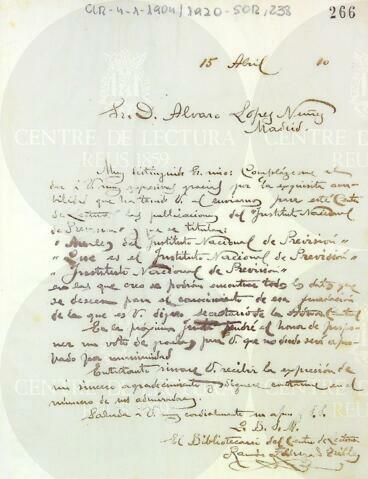 CLR-4-1-1904/1920-SOR, 238
266
15 Abril 10
Sr. D. Alvaro López Núñez
Madrid.
CENTRE DE LECTURA
REUS 1859
Muy distinguido Sr. mio: Complázcome el
dar á V. muy expresivas gracias por la exquisita ama-
bilidad que ha tenido V. al enviarme para este Centro
de Lectura las publicaciones del "Instituto Nacional
de Previsión" y que se titulan:
"Anales del Instituto Nacional de Previsión"
"Que es el Instituto Nacional de Previsión"
"Instituto Nacional de Previsión"
en las que creo se podrán encontrar todos los datos que
se deseen para el conocimiento de esa fundación
de la que es V. digno secretario de la Admon. Central
En la próxima Junta tendré el honor de propo-
ner un voto de gracias para V. que no dudo será apro-
bado por unanimidad.
Entretanto sírvase V. recibir la expresión de
mi sincero agradecimiento y dígnese contarme en el
número de sus admiradores.
Saluda á V. muy cordialmente su afmo. S. S.
Q. B. S. M.
El Bibliotecario del Centro de Lectura